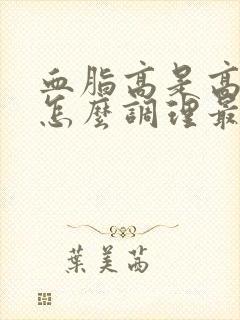 血脂高是高
怎麼調理最
葉美茜